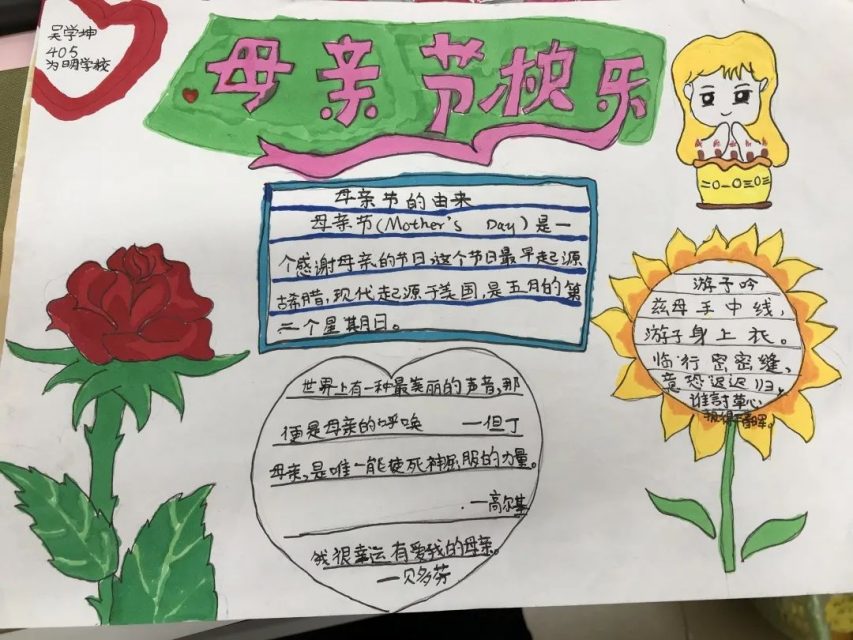 吴学坤
405
为明学校
母亲节快乐
母亲节的由来
母亲节(Mother's Day)是一
个感谢母亲的节日这个节日最早起源
古希腊,现代起源于美国,是五月的第
二个星期日。
世界上有一种最美丽的声音,那
便是母亲的呼唤 —但丁
母亲,是唯一能使死神屈服的力量。
—高尔基
我很幸运有爱我的母亲。
—贝多芬
游子吟
兹母手中线,
游子身上衣。
临行密密缝,
意恐迟迟归,
谁言寸草心